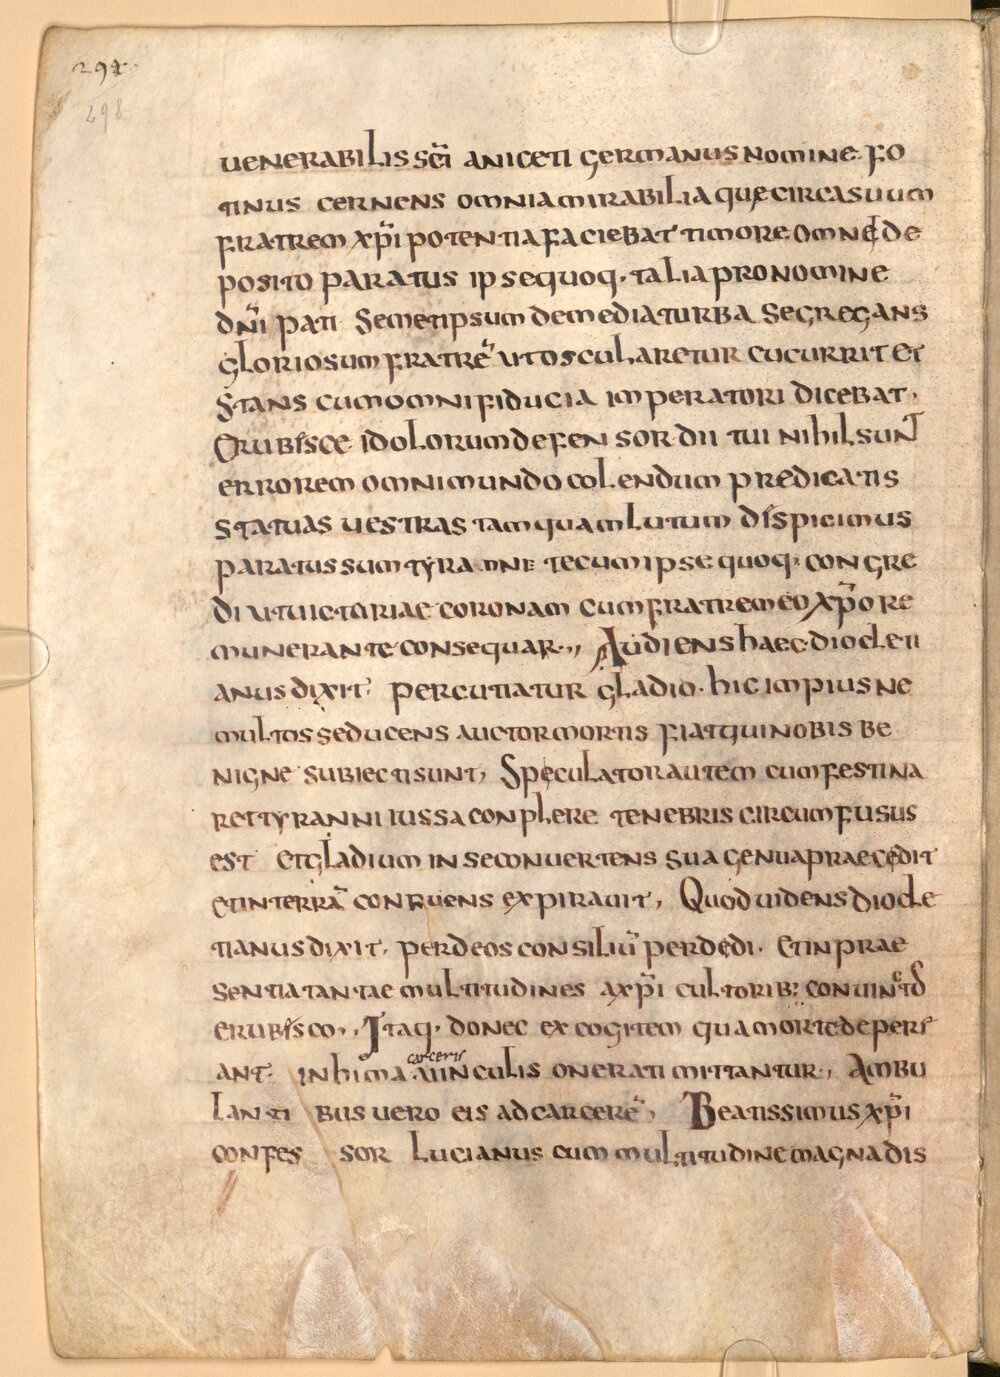 297
298
uenerabilis sc̅i aniceti germanus nomine fo
tinus cernens omnia mirabilia quę circa suum
fratrem xp̅i potentia faciebat timore omne de
posito paratus ipse quoq· talia pro nomine
dn̅i pati Semetipsum de media turba segregans
gloriosum fratrē ut oscularetur cucurrit et
stans cum omni fiducia imperatori dicebat,
Erubisce idolorum defensor dii tui nihil sunt
errorem omni mundo colendum predicatis
statuas uestras tamquam lutum dispicimus
paratus sum tyranne tecum ipse quoq· congre
di ut uictoriae coronam cum fratre meo xp̅o re
munerante consequar·,, Audiens haec diocleti
anus dixit· percutiatur gladio· hic impius ne
multos seducens auctor mortis fiat qui nobis be
nigne subiecti sunt, Speculator autem cum festina
ret tyranni iussa conplere tenebris circumfusus
est et gladium in se conuertens sua genua praecedit
et in terrā conruens expirauit, Quod uidens diocle
tianus dixit, perdeos consiliū perdedi· et in prae
sentia tantae multitudines a xp̅i cultorib; conuinctd
erubisco·, Itaq· donec excogitem qua morte deperi
ant· in hima uinculis onerati mittantur·, Ambu
carceris
lantibus uero eis ad carcerē, Beatissimus xp̅i
confessor lucianus cum multitudine magna dis